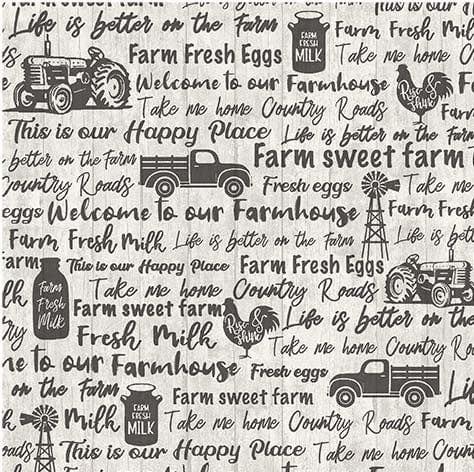 Life is better on the Farm
FARM FRESH MILK
Farm Fresh Milk
Farm sweet farm
Farm Fresh Eggs
Take me home Coun
Welcome to our Farmhouse
Rise & Shine
Take me home Country Roads
Farm
This is our Happy Place
Life is better on the Farm
better on the Farm
Farm sweet farm
Country Roads
Fresh eggs
Take me
eggs Welcome to our Farmhouse
Farm Fresh
Farm Fresh Milk
Life is better on the Farm
Life is bett
Farm Fresh Milk
This is our Happy Place
Farm Fresh Eggs
Take me home Country Roads
Farm sweet farm
Rise & Shine
Life is better on the
Fresh Milk
Take me home Country Ro
to our Farmhouse
Fresh eggs
on the Farm
Farm sweet farm
Milk
FARM FRESH MILK
Take me home Country Roads
Farm
This is our Happy Place
Life is better